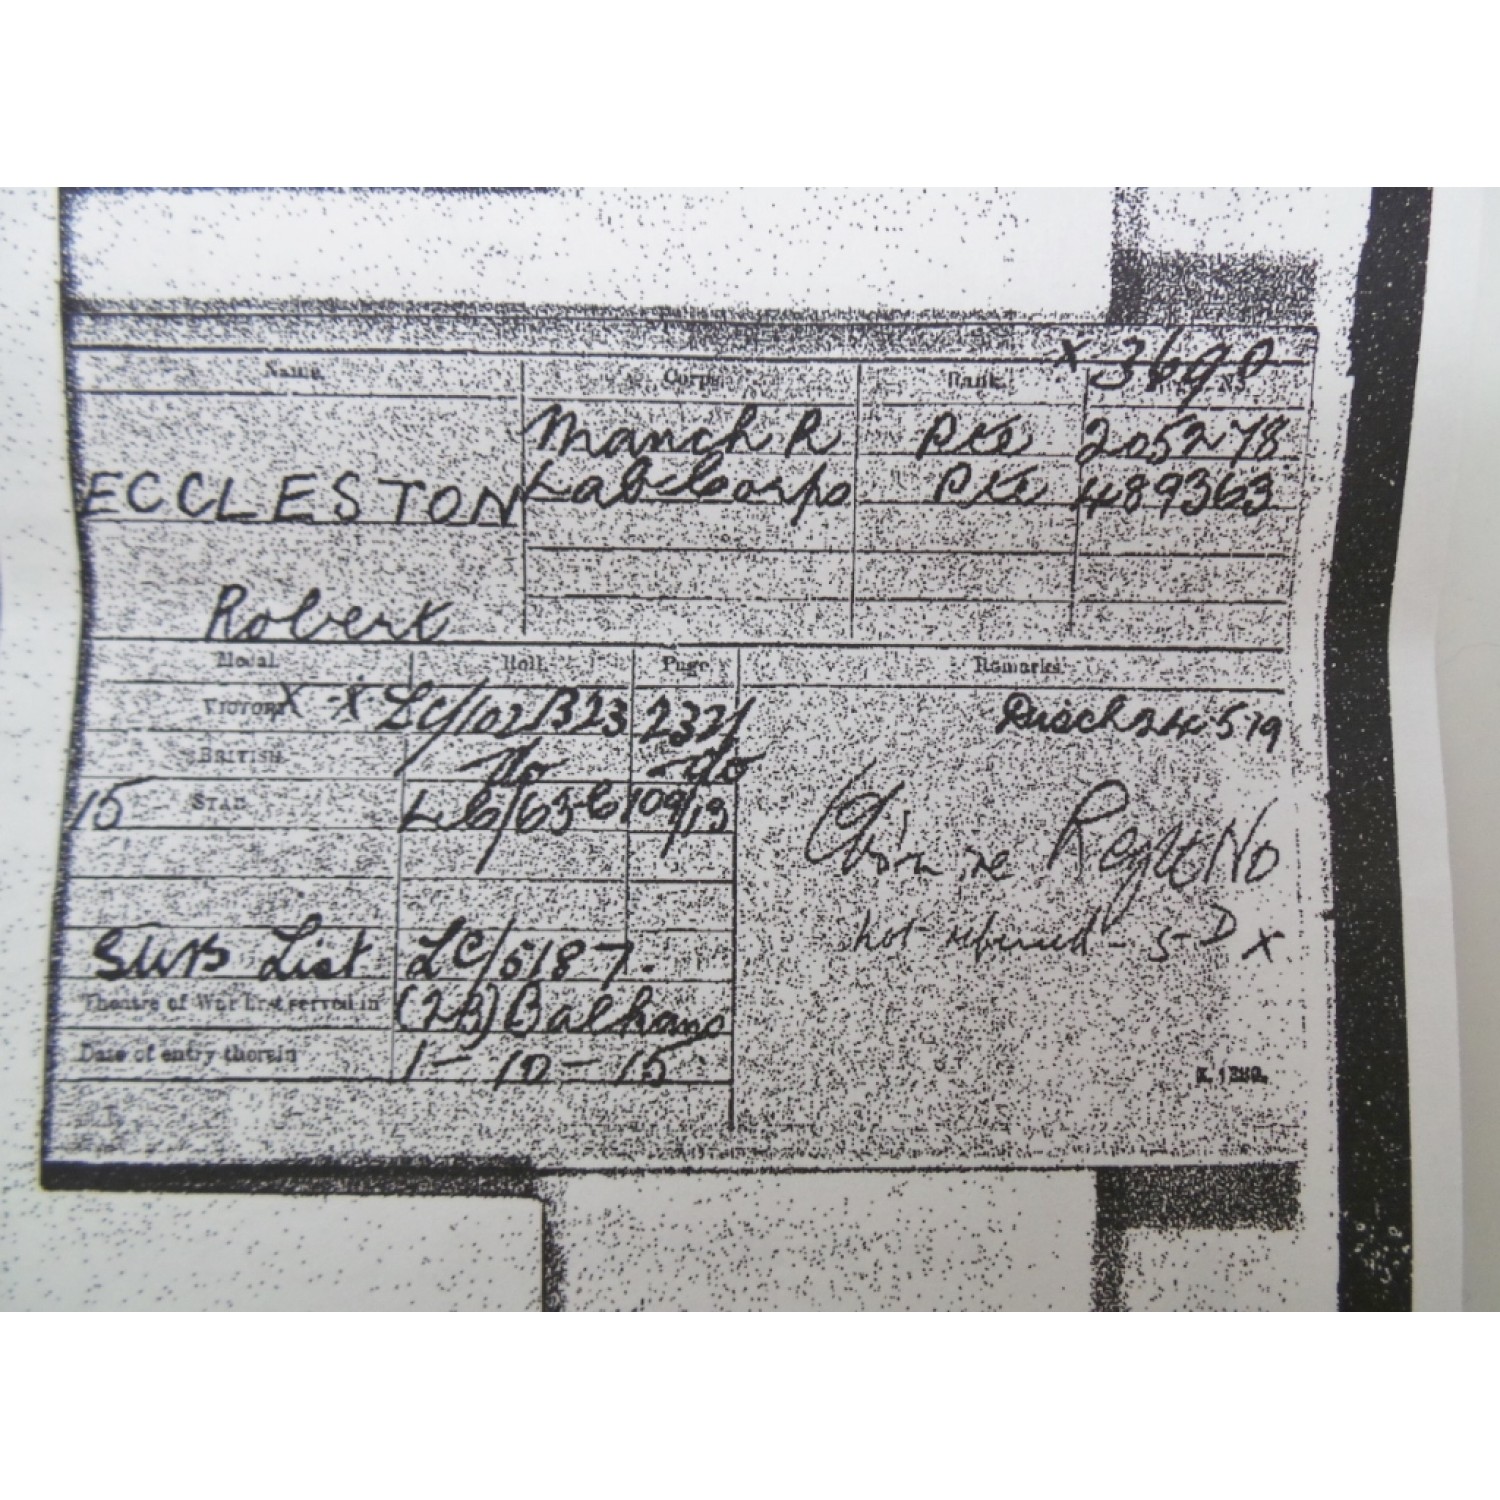 x 3690
Name Corps Rank No
Manch R Pte 205278
ECCLESTON Lab Corps Pte 489363
Robert
Medal Roll Page Remarks
VICTORY X - X LC/102B23 2321 Disch 24 5 19
BRITISH - do - - do
15 STAR LC/65C 109/13
Regtl No
not referred - 5 D x
SWB List LC/5187.
Theatre of War first served in (2B) Balkans
Date of entry therein 1 - 10 - 15
K. 1380.